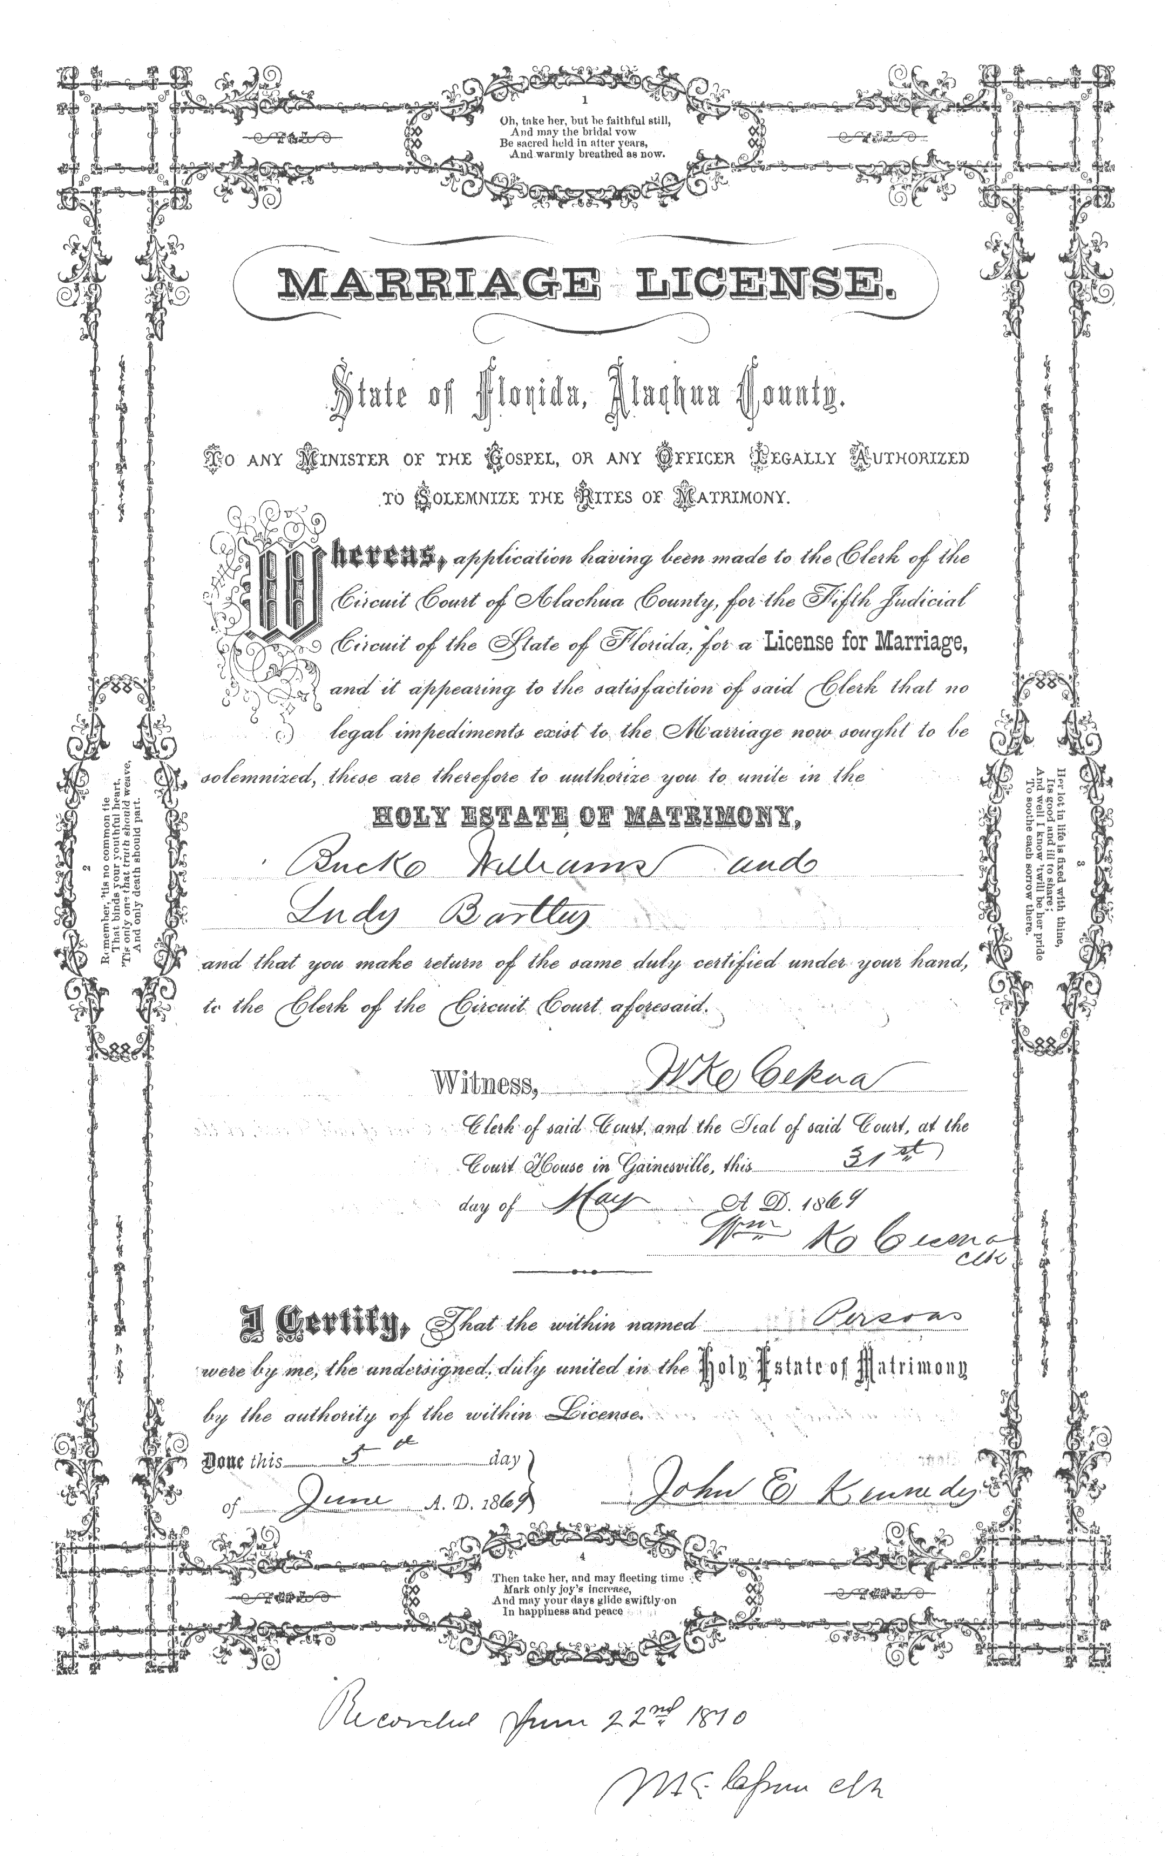 1
Oh, take her, but be faithful still,
And may the bridal vow
Be sacred held in after years,
And warmly breathed as now.
MARRIAGE LICENSE.
State of Florida, Alachua County.
TO ANY MINISTER OF THE GOSPEL, OR ANY OFFICER LEGALLY AUTHORIZED
TO SOLEMNIZE THE RITES OF MATRIMONY.
Whereas, application having been made to the Clerk of the
Circuit Court of Alachua County, for the Fifth Judicial
Circuit of the State of Florida, for a License for Marriage,
and it appearing to the satisfaction of said Clerk that no
legal impediments exist to the Marriage now sought to be
solemnized, these are therefore to authorize you to unite in the
HOLY ESTATE OF MATRIMONY,
Buck Williams and
Judy
and that you make return of the same duly certified under your hand,
to the Clerk of the Circuit Court aforesaid.
Witness,
Clerk of said Court, and the Seal of said Court, at the
Court House in Gainesville, this 31st
day of May A. D. 1869
Wm K
Clk
I Certify, That the within named Persons
were by me, the undersigned, duly united in the Holy Estate of Matrimony
by the authority of the within License.
Done this 5th day
of June A. D. 1869
John E Kennedy
2
Remember, 'tis no common tie
That binds your youthful heart,
'Tis only one that truth should weave,
And only death should part.
3
Her lot in life is fixed with thine,
Its good and ill to share;
And well I know 'twill be her pride
To soothe each sorrow there.
4
Then take her, and may fleeting time
Mark only joy's increase,
And may your days glide swiftly on
In happiness and peace
Recorded June 22nd 1870
clk